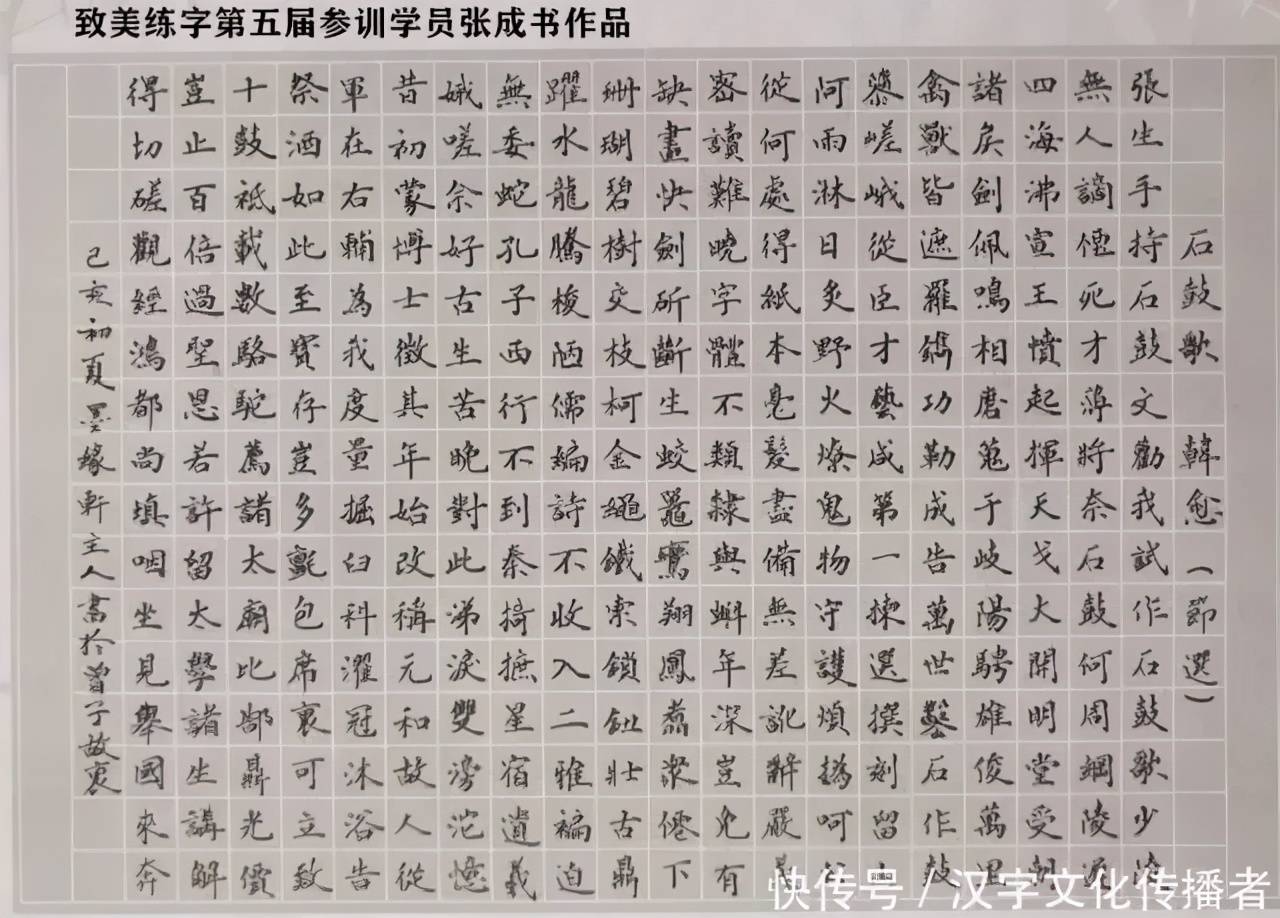 致美练字第五届参训学员张成书作品
石鼓歌 韓愈（節選）
張生手持石鼓文勸我試作石鼓歌少陵
無人謫僊死才薄將奈石鼓何周綱陵遲
四海沸宣王憤起揮天戈大開明堂受朝
諸侯劍佩鳴相磨蒐于岐陽騁雄俊萬里
禽獸皆遮羅鐫功勒成告萬世鑿石作鼓
隳嵯峨從臣才藝咸第一揀選撰刻留
阿雨淋日炙野火燎鬼物守護煩撝呵公
從何處得紙本毫髮盡備無差訛辭嚴義
密讀難曉字體不類隸與蝌年深豈免有
缺畫快劍斫斷生蛟鼉鸞翔鳳翥眾僊下
珊瑚碧樹交枝柯金繩鐵索鎖鈕壯古鼎
躍水龍騰梭陋儒編詩不收入二雅褊迫
無委蛇孔子西行不到秦掎摭星宿遺羲
娥嗟余好古生苦晚對此涕淚雙滂沱憶
昔初蒙博士徵其年始改稱元和故人從
軍在右輔為我度量掘臼科濯冠沐浴告
祭酒如此至寶存豈多氈包席裹可立致
十鼓祗載數駱駝薦諸太廟比郜鼎光價
豈止百倍過聖恩若許留太學諸生講解
得切磋觀經鴻都尚填咽坐見舉國來奔
己亥初夏墨緣軒主人書於曾子故裏
快传号/汉字文化传播者